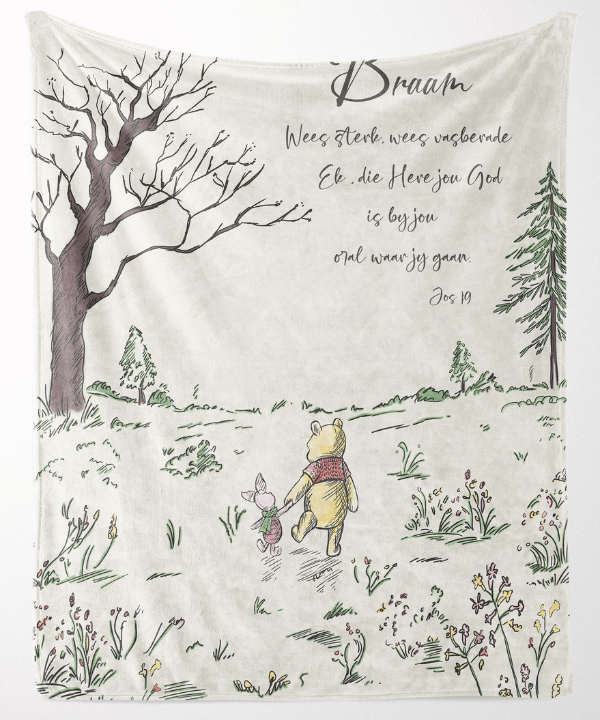 Braam
Wees sterk, wees vasberade
Ek , die Here jou God
is by jou
oral waar jy gaan.
Jos 19